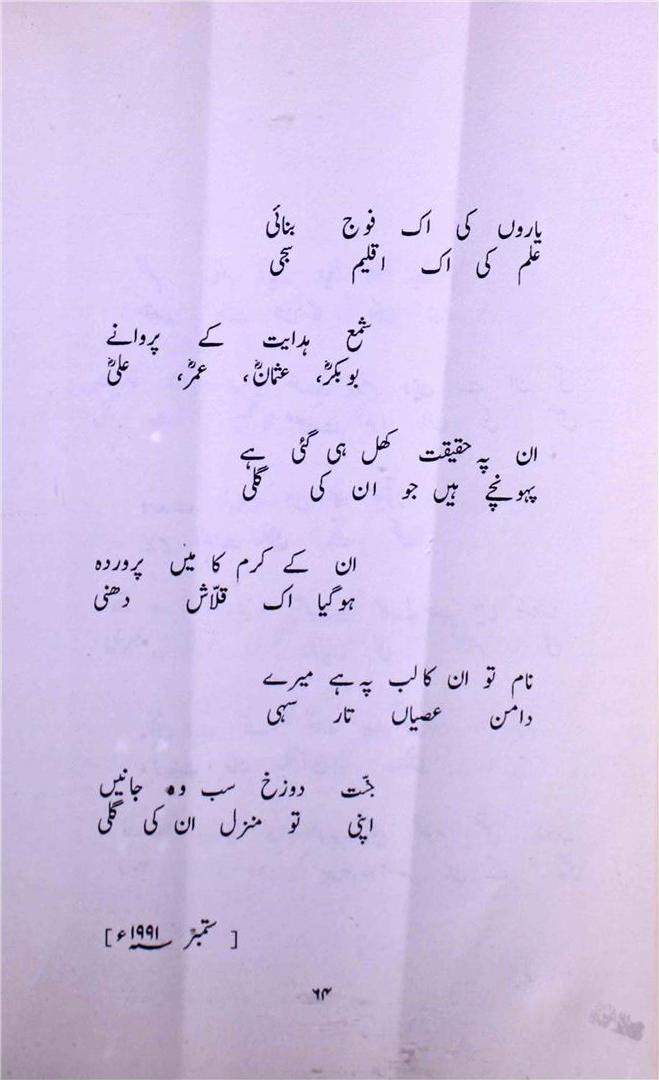 یاروں کی اک فوج بنائی
علم کی اک اقلیم سجی
شمع ہدایت کے پروانے
بوبکرؓ، عثمانؓ، عمرؓ، علیؓ
ان پہ حقیقت کھل ہی گئی ہے
پہونچے ہیں جو ان کی گلی
ان کے کرم کا میں پروردہ
ہوگیا اک قلّاش دھنی
نام تو ان کا لب پہ ہے میرے
دامن عصیاں تار سہی
جنّت دوزخ سب وہ جانیں
اپنی تو منزل ان کی گلی
[ ستمبر ۱۹۹۱ء ]
۶۴